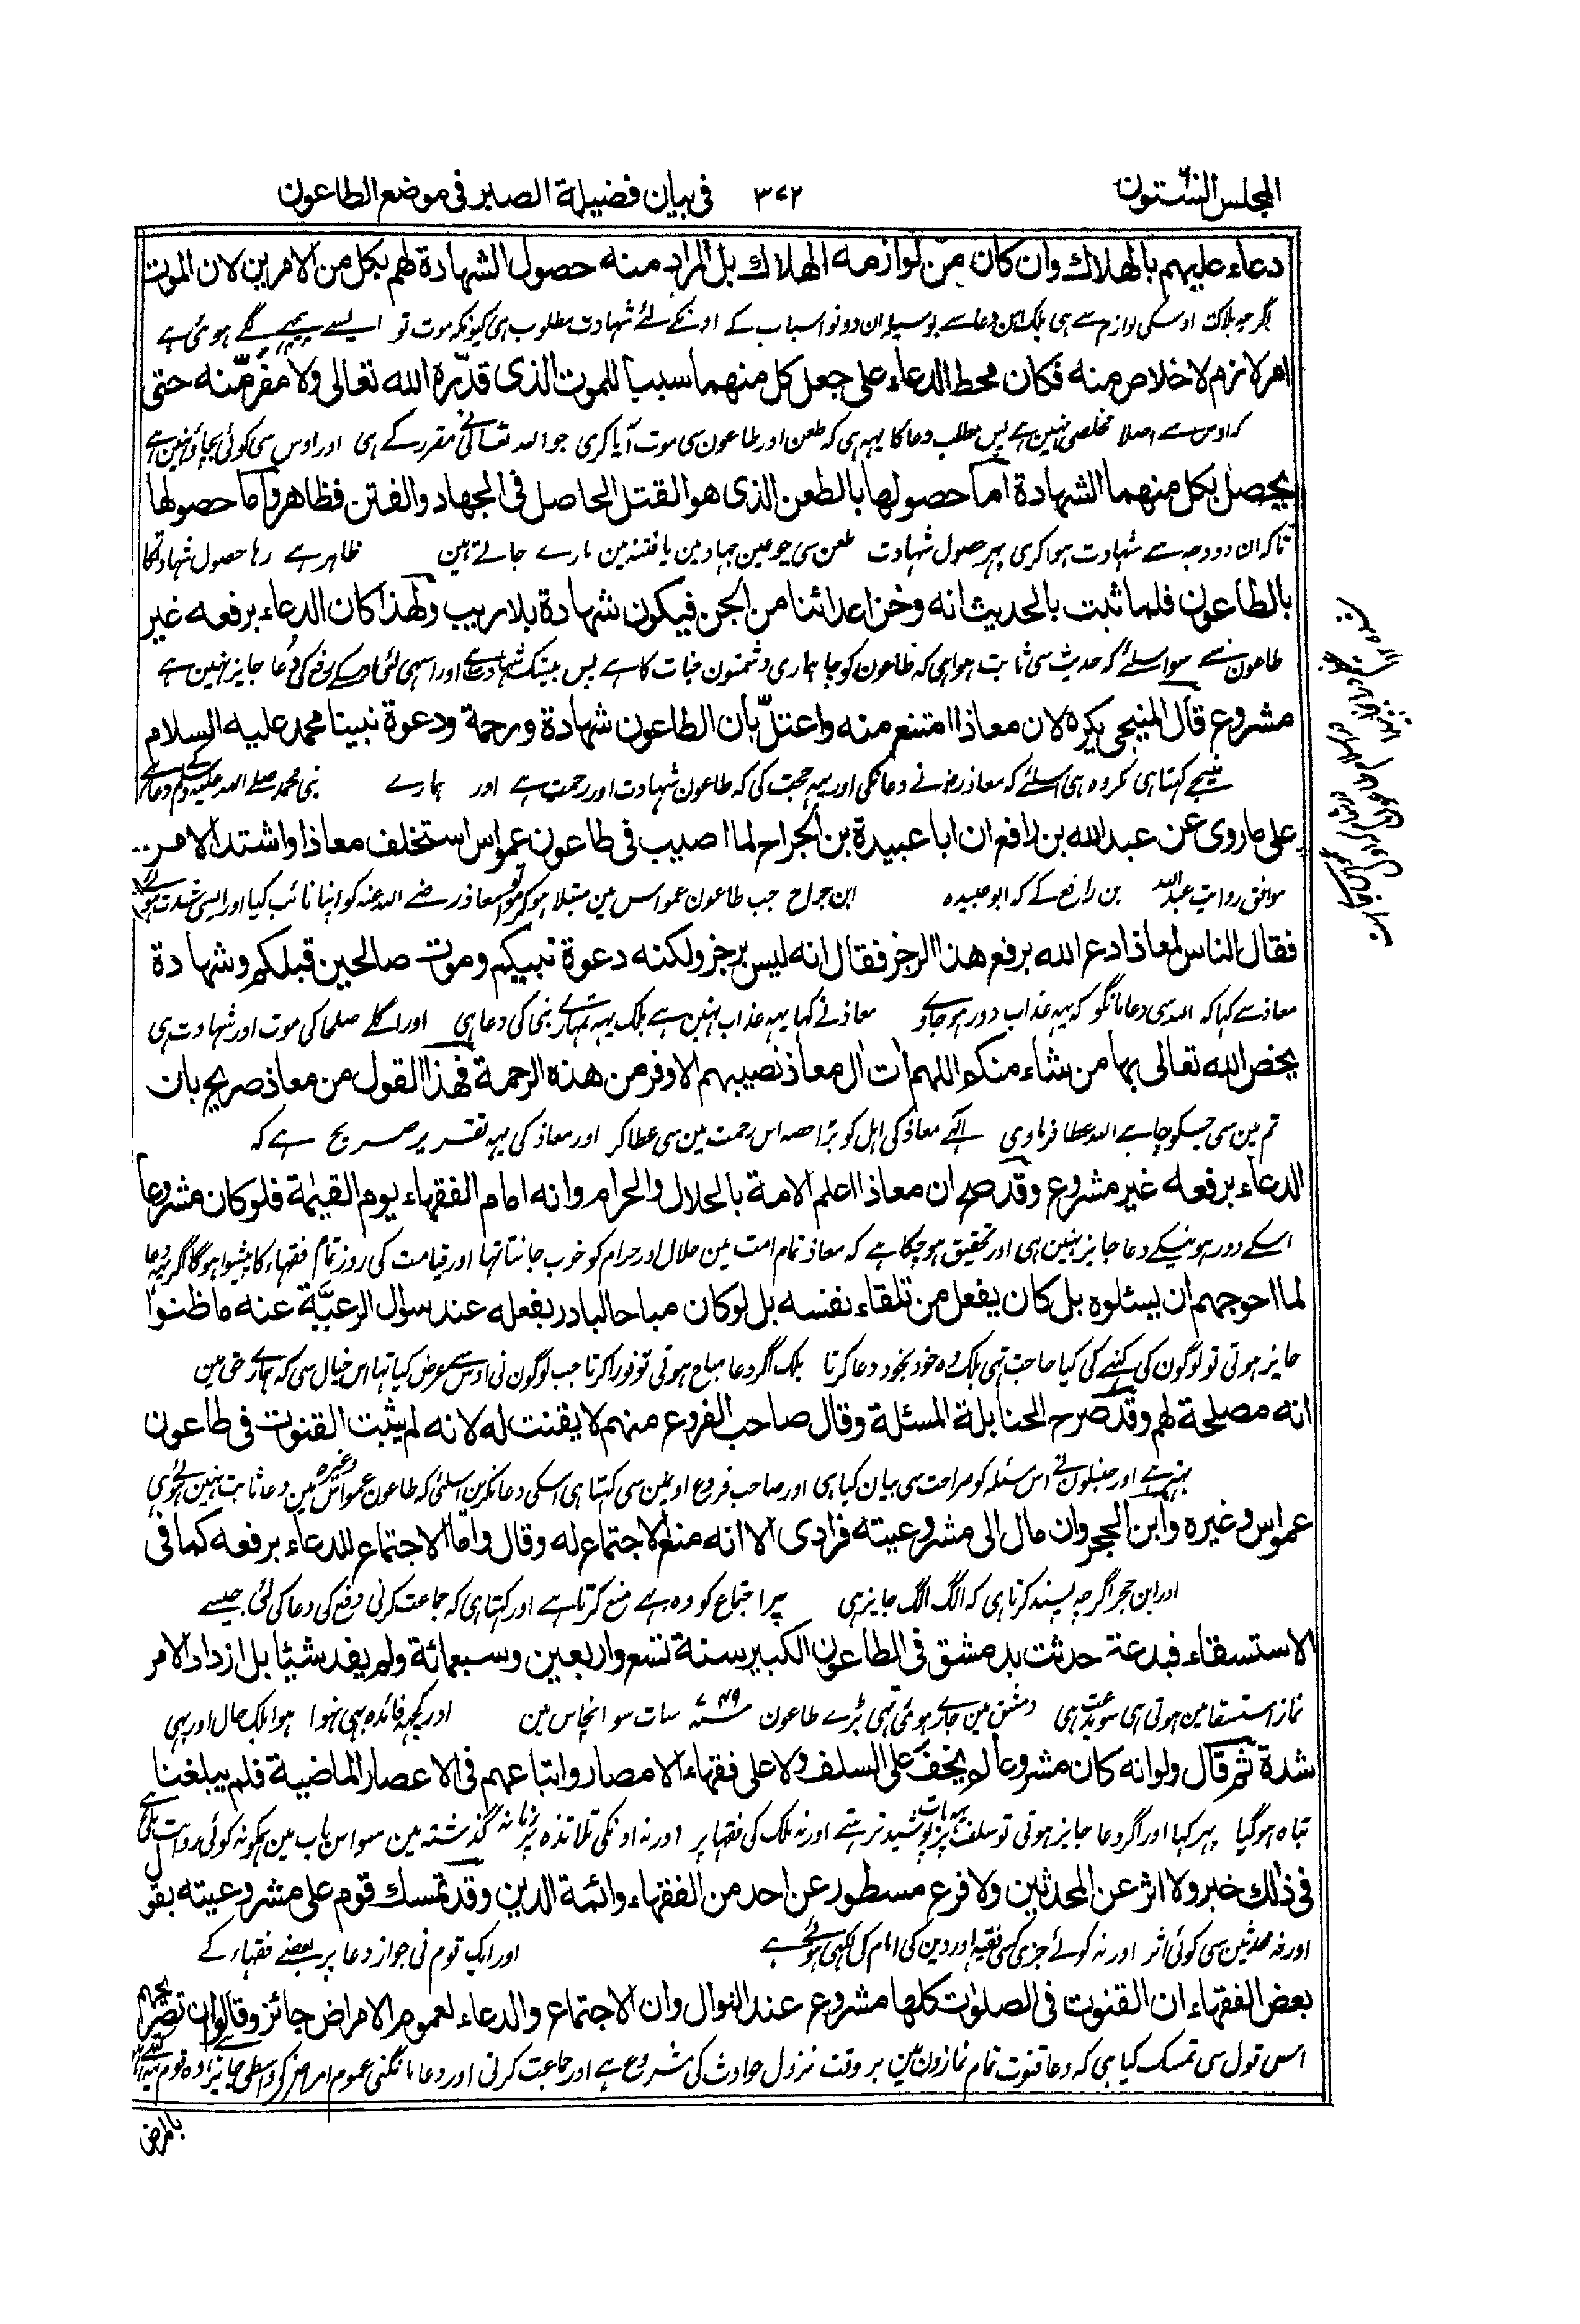 المجلس الستون ٣٧٢ فی بیان فضیلة الصبر فی موضع الطاعون
دعاء علیهم بالهلاك وان كان من لوازمه الهلاك بل المراد منه حصول الشهادة لهم بكل من الامرین لان الموت
اگرچہ ہلاکت اوسکی لوازم سے ہی بلکہ اس دعا سے بوسیلہ ان دونو اسباب کے اونکے لئے شہادت مطلوب ہی کیونکہ موت تو ایسے پیچھے لگے ہوئی ہے
امر لازم لا خلاص منه فكان محط الدعاء علی جعل كل منهما سببا للموت الذی قدّره الله تعالی ولا مفرّ منه حتی
کہ اوس سے اصلا مخلصی نہین ہے پس مطلب دعا کا یہہ ہی کہ طعن اور طاعون سی موت آیا کری جو اللہ تعالی نے مقرر کے ہی اور اوس سی کوئی بچاؤ نہین ہے
یحصل بكل منهما الشهادة اما حصولها بالطعن الذی هو القتل الحاصل فی الجهاد والفتن فظاهر واما حصولها
تاکہ ان دو وجہ سے شہادت ہوا کری پہر حصول شہادت طعن سی جو عین جہاد مین یا فتنہ مین مارے جاتے ہین ظاہر ہے رہا حصول شہادت کا
بالطاعون فلما ثبت بالحدیث انه وخز اعدائنا من الجن فیكون شهادة بلا ریب ولهذا كان الدعاء برفعه غیر
طاعون سے سو اسلئے کہ حدیث سی ثابت ہوا ہی کہ طاعون کوچا ہماری دشمنون جنات کا ہے پس بیشک شہادت ہے اور اسہی لئی اوسکے رفع کی دعا جایز نہین ہے
مشروع قال المنبجی یكره لان معاذا امتنع منه واعتلّ بان الطاعون شهادة ورحمة ودعوة نبینا محمد علیه السلام
منبجے کہتا ہی مکروہ ہی اسلئے کہ معاذ رض نے دعا نکی اور یہہ حجت کی کہ طاعون شہادت اور رحمت ہے اور ہمارے نبی محمد صلے اللہ علیہ وسلم کے دعا ہے
علی ما روی عن عبد الله بن رافع ان ابا عبیدة بن الجراح لما اصیب فی طاعون عمواس استخلف معاذا واشتد الامر
موافق روایت عبد اللہ بن رافع کے کہ ابو عبیدہ ابن جراح جب طاعون عمواس مین مبتلا ہو کر معاذ رضے اللہ عنہ کو اپنا نائب کیا اور ایسی شدت ہوئی
فقال الناس لمعاذ ادع الله برفع هذا الرجز فقال انه لیس برجز ولكنه دعوة نبیكم وموت صالحین قبلكم وشهادة
معاذ سے کہا کہ اللہ سی دعا مانگو کہ یہہ عذاب دور ہو جاوے معاذ نے کہا یہہ عذاب نہین ہے بلکہ یہہ تمہارے نبی کی دعا ہی اور اگلے صلحا کی موت اور شہادت ہی
یخص الله تعالی بها من شاء منكم اللهم اٰت اٰل معاذ نصیبهم الاوفر من هذه الرحمة فهذا القول من معاذ صریح بان
تم مین سی جسکو چاہے اللہ عطا فرماوی آلہی معاذ کی اہل کو بڑا حصہ اس رحمت مین سی عطا کر اور معاذ کی یہہ تقریر صریح ہے کہ
الدعاء برفعه غیر مشروع وقد صح ان معاذا اعلم الامة بالحلال والحرام وانه امام الفقهاء یوم القیٰمة فلو كان مشروعا
اسکے دور ہونیکے دعا جایز نہین ہی اور تحقیق ہو چکا ہے کہ معاذ تمام امت مین حلال اور حرام کو خوب جانتا تہا اور قیامت کی روز تمام فقہاء کا پیشوا ہوگا اگر یہہ دعا
لما احوجهم ان یسئلوه بل كان یفعل من تلقاء نفسه بل لو كان مباحا لبادر بفعله عند سؤال الرعیّة عنه ما ظنوا
جایز ہوتی تو لوگون کی کہنے کی کیا حاجت تہی بلکہ وہ خود بخود دعا کرتا بلکہ اگر دعا مباح ہوتی تو فورا کرتا جب لوگون نی اوس سے عرض کیا تہا اس خیال سی کہ ہمارے حق مین
انه مصلحة لهم وقد صرح الحنابلة المسئلة وقال صاحب الفروع منهم لا یقنت له لانه لم یثبت القنوت فی طاعون
بہتر ہے اور حنبلون نے اس مسئلہ کو صراحت سی بیان کیا ہی اور صاحب فروع اونمین سی کہتا ہی اسکی دعا نکرین اسلئی کہ طاعون عمواس وغیرہ مین دعا ثابت نہین ہوئی
عمواس وغیره وابن الحجر وان مال الی مشروعیته فرادی الا انه منع الاجتماع له وقال واما الاجتماع للدعاء برفعه كما فی
اور ابن حجر اگرچہ پسند کرتا ہی کہ الگ الگ جایز ہی پر اجتماع کو وہ بہے منع کرتا ہے اور کہتا ہی کہ جماعت کرنی دفع کی دعا کی لئی جیسے
الاستسقاء فبدعة حدثت بدمشق فی الطاعون الكبیر سنة تسع واربعین وسبعمائة ولم یفد شیئا بل ازداد الامر
نماز استسقا مین ہوتی ہی سو بدعت ہی دمشق مین جاری ہوئی تہی بڑے طاعون سنہ ۷۴۹ سات سو انچاس مین اور کچہہ فائدہ بہی نہوا ہوا بلکہ حال اور بہی
شدة ثم قال ولو انه كان مشروعا لم یخف علی السلف ولا علی فقهاء الامصار واتباعهم فی الاعصار الماضیة فلم یبلغنا
تباہ ہوگیا پہر کہا اور اگر دعا جایز ہوتی تو سلف پر یہہ بات پوشیدہ نرہتے اور نہ ملک کی فقہا پر اور نہ اونکی تلامذہ پر زمانہ گذشتہ مین سو اس باب مین ہمکو نہ کوئی روایت ملی ہے
فی ذٰلك خبر ولا اثر عن المحدثین ولا فرع مسطور عن احد من الفقهاء وائمة الدین وقد تمسك قوم علی مشروعیته بقول
اور نہ محدثین سی کوئی اثر اور نہ کوئے جزی کسی فقیہ اور دین کی امام کی لکہی ہوئے ہے اور ایک قوم نی جواز دعا پر بعضے فقہاء کے
بعض الفقهاء ان القنوت فی الصلوٰت كلها مشروع عند النوال وان الاجتماع والدعاء لعموم الامراض جائز وقالوا ان تصریحهم
اس قول سی تمسک کیا ہی کہ دعا قنوت تمام نمازون مین بر وقت نزول حوادث کی مشروع ہے اور جماعت کرنی اور دعا مانگنی عموم امراض کی واسطی جایز اور وہ قوم یہہ
بالمرض